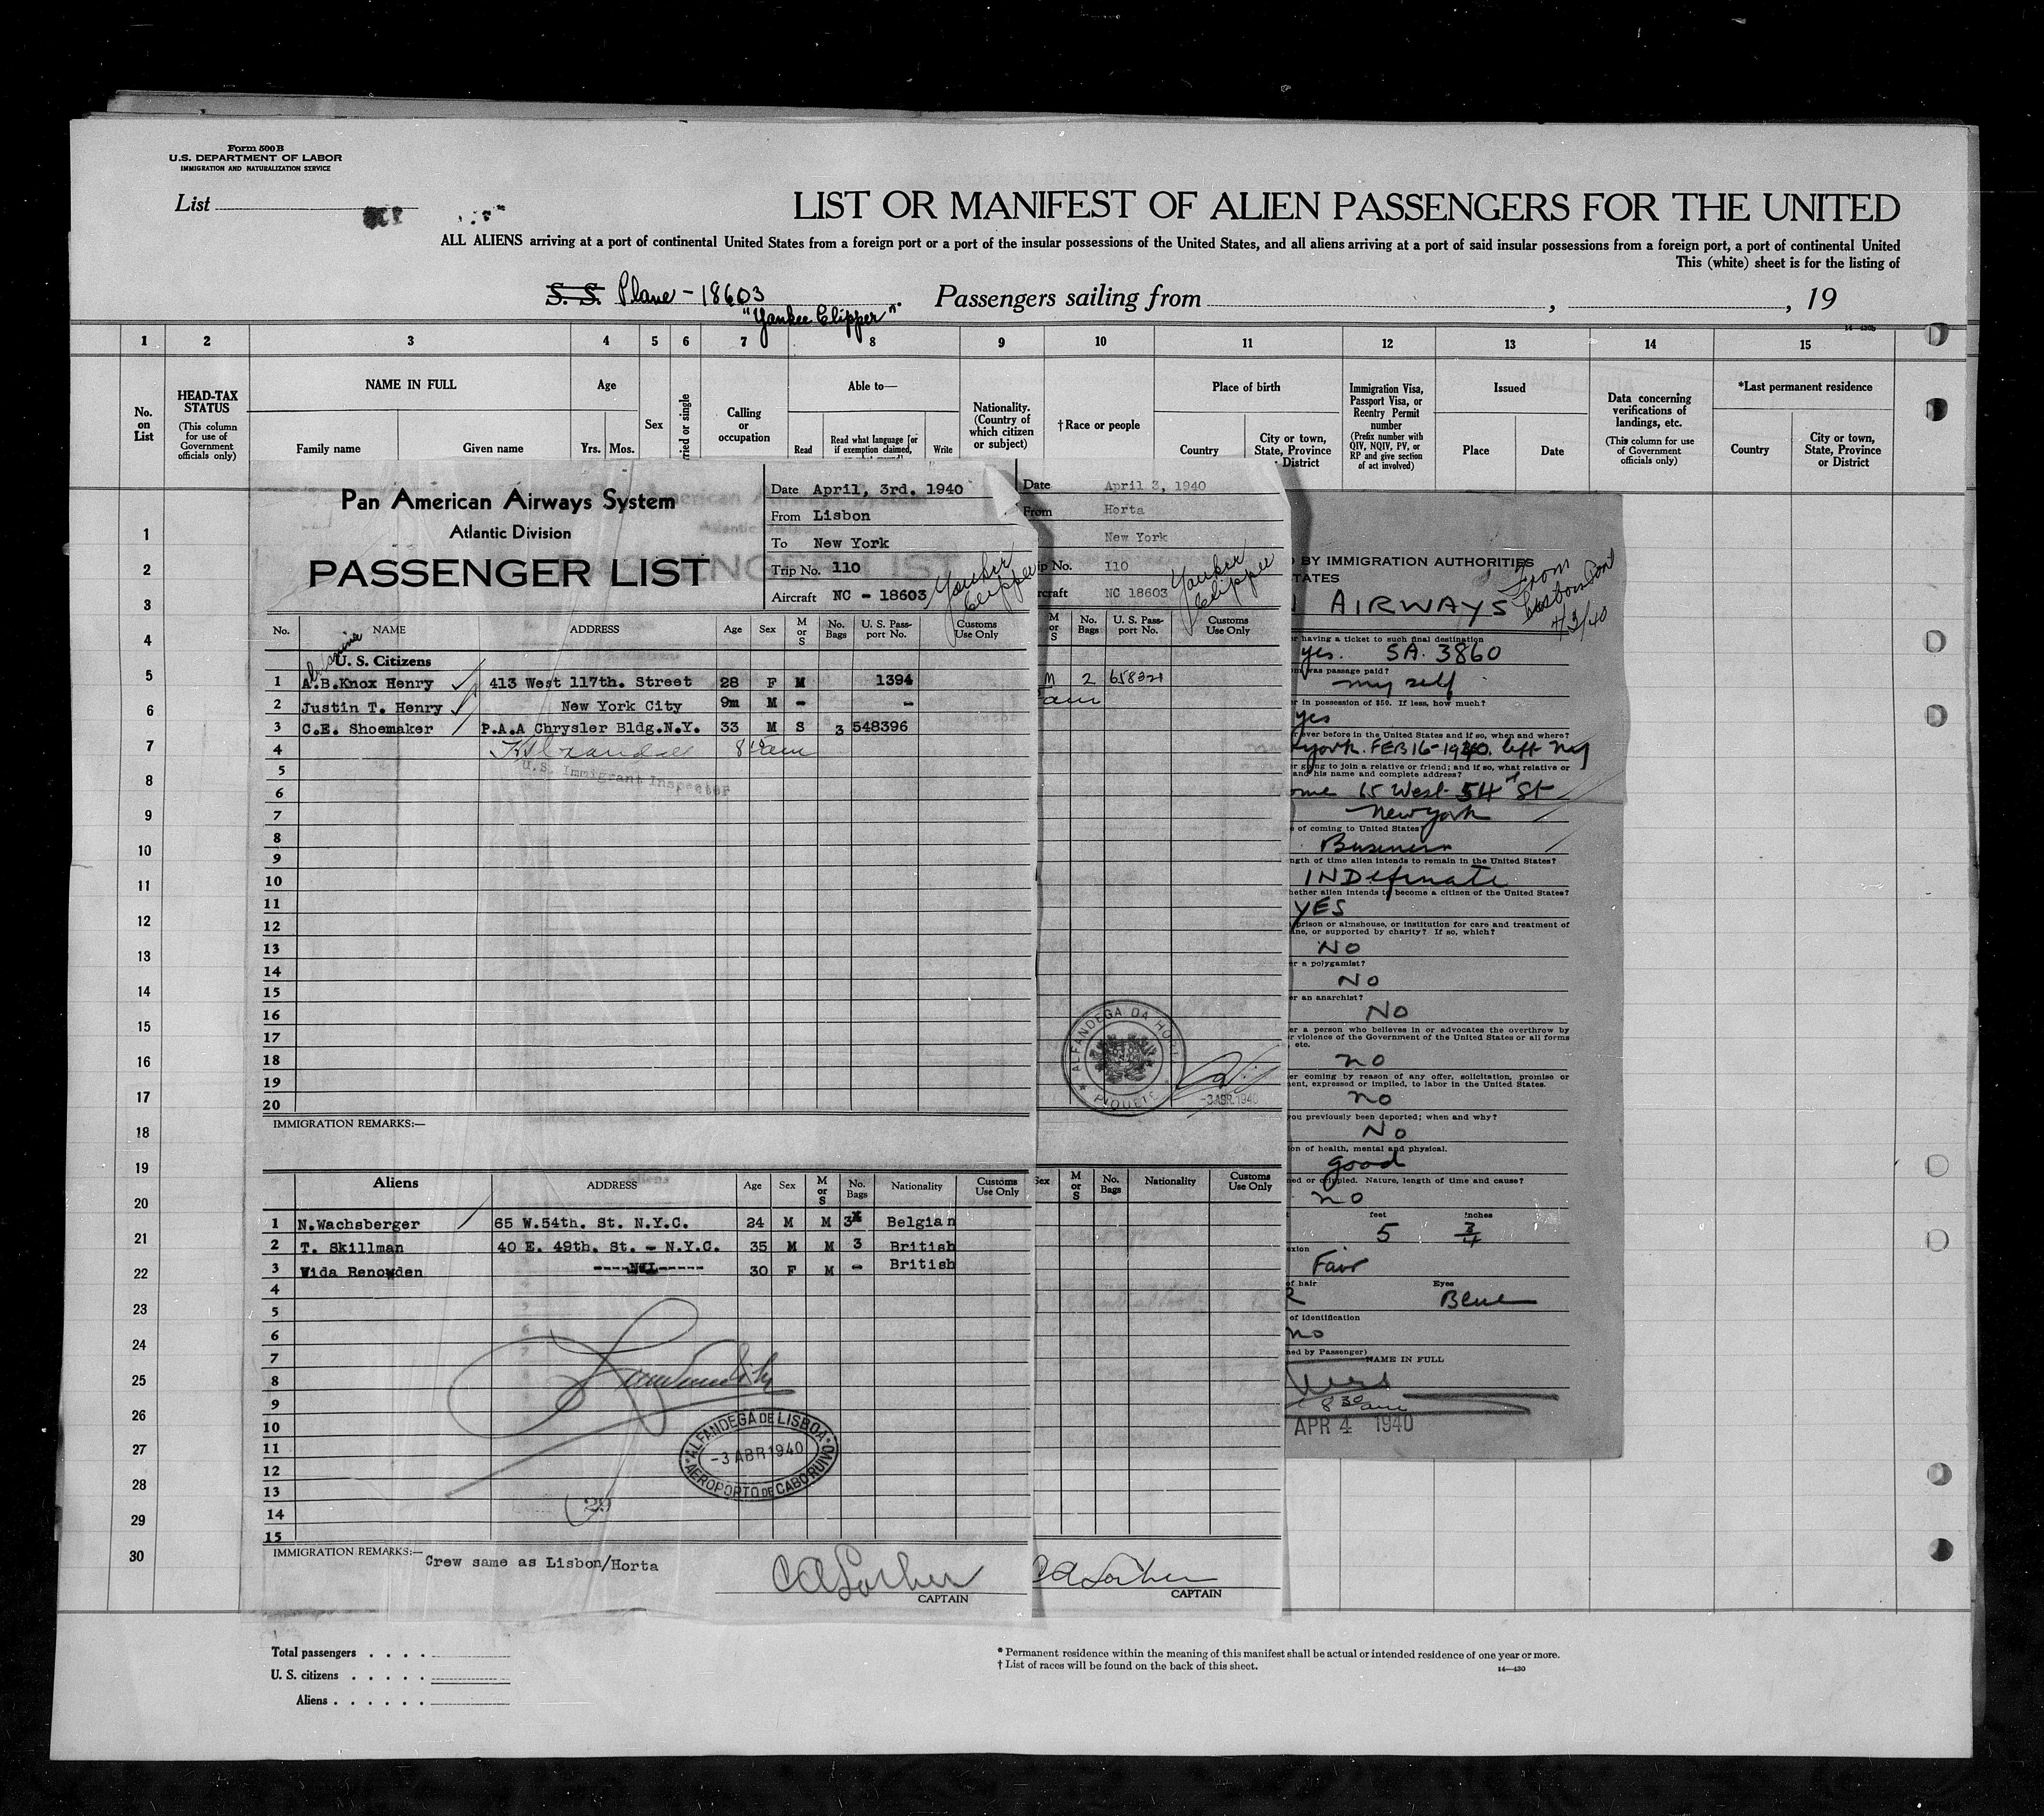 Form 500 B
U.S. DEPARTMENT OF LABOR
IMMIGRATION AND NATURALIZATION SERVICE
List
LIST OR MANIFEST OF ALIEN PASSENGERS FOR THE UNITED
ALL ALIENS arriving at a port of continental United States from a foreign port or a port of the insular possessions of the United States, and all aliens arriving at a port of said insular possessions from a foreign port, a port of continental United
This (white) sheet is for the listing of
S. S. Plane - 18603 Passengers sailing from , , 19
"Yankee Clipper"
14-430b
1 2 3 4 5 6 7 8 9 10 11 12 13 14 15
No. on List
HEAD-TAX STATUS
(This column for use of Government officials only)
NAME IN FULL
Family name Given name
Age
Yrs. Mos.
Sex
Calling or occupation
Able to—
Read Read what language [or if exemption claimed, Write
Nationality. (Country of which citizen or subject)
†Race or people
Place of birth
Country City or town, State, Province or District
Immigration Visa, Passport Visa, or Reentry Permit number
(Prefix number with QIV, NQIV, PV, or RP and give section of act involved)
Issued
Place Date
Data concerning verifications of landings, etc.
(This column for use of Government officials only)
*Last permanent residence
Country City or town, State, Province or District
1
2
3
4
5
6
7
8
9
10
11
12
13
14
15
16
17
18
19
20
21
22
23
24
25
26
27
28
29
30
Pan American Airways System
Atlantic Division
PASSENGER LIST
Date April, 3rd. 1940
From Lisbon
To New York
Trip No. 110
Aircraft NC - 18603
Yankee Clipper
No. NAME ADDRESS Age Sex M or S No. Bags U. S. Passport No. Customs Use Only
U. S. Citizens
1 A.B.Knox Henry 413 West 117th. Street 28 F M 1394
2 Justin T. Henry New York City 9m M - -
3 C.E. Shoemaker P.A.A Chrysler Bldg.N.Y. 33 M S 3 548396
4
U.S. Immigrant Inspector
5
6
7
8
9
10
11
12
13
14
15
16
17
18
19
20
IMMIGRATION REMARKS:—
Aliens ADDRESS Age Sex M or S No. Bags Nationality Customs Use Only
1 N.Wachsberger 65 W.54th. St. N.Y.C. 24 M M 3 Belgian
2 T. Skillman 40 E. 49th. St. - N.Y.C. 35 M M 3 British
3 Wida Renowden ----NIL----- 30 F M - British
4
5
6
7
8
9
10
11
12
13
14
15
ALFANDEGA DE LISBOA
-3 ABR 1940
AEROPORTO DE CABO RUIVO
29
IMMIGRATION REMARKS:— Crew same as Lisbon/Horta
CAPTAIN
Date April 3, 1940
From Horta
New York
ip No. 110
rcraft NC 18603
Yankee Clipper
M or S No. Bags U. S. Passport No. Customs Use Only
M 2 658321
am
ALFANDEGA DA HORTA
PIQUETE
-3 ABR. 1940
Sex M or S No. Bags Nationality Customs Use Only
CAPTAIN
D BY IMMIGRATION AUTHORITIES
TATES
AIRWAYS
From
4/3/40
r having a ticket to such final destination
yes. SA. 3860
om was passage paid?
my self
r in possession of $50. If less, how much?
yes
r ever before in the United States and if so, when and where?
york. FEB 16-1940. left NY
er going to join a relative or friend; and if so, what relative or
and his name and complete address?
ome 65 West 54th St
New york
e of coming to United States?
Business
ngth of time alien intends to remain in the United States?
INDefinate
hether alien intends to become a citizen of the United States?
YES
prison or almshouse, or institution for care and treatment of
ne, or supported by charity? If so, which?
NO
er a polygamist?
NO
er an anarchist?
NO
er a person who believes in or advocates the overthrow by
r violence of the Government of the United States or all forms
, etc.
no
er coming by reason of any offer, solicitation, promise or
ment, expressed or implied, to labor in the United States.
no
you previously been deported; when and why?
No
ion of health, mental and physical.
good
ed or crippled. Nature, length of time and cause?
no
feet inches
5 3/4
exion
Fair
of hair Eyes
Blue
of identification
no
ned by Passenger)
NAME IN FULL
8 30 am
APR 4 1940
Total passengers . . . .
U. S. citizens . . . . .
Aliens . . . . . .
* Permanent residence within the meaning of this manifest shall be actual or intended residence of one year or more.
† List of races will be found on the back of this sheet.
14-430